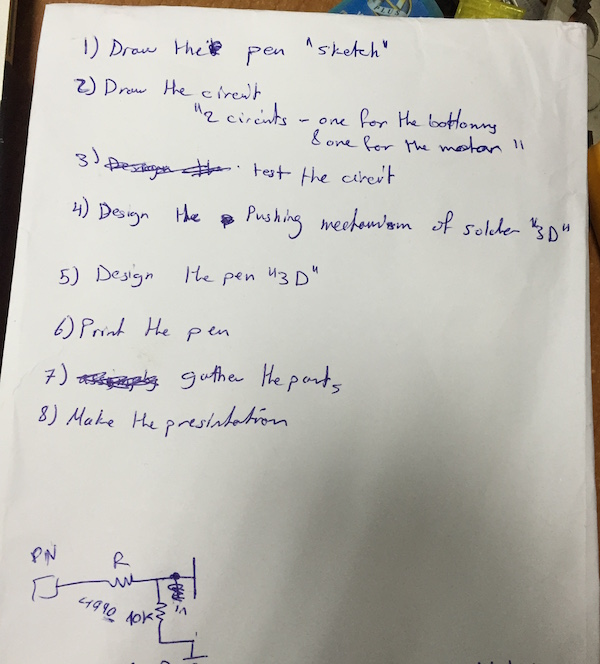 1) Draw the pen "sketch"
2) Draw the circuit
"2 circuits - one for the bottonns
& one for the motor"
3) test the circuit
4) Design the Pushing mechanism of solder "3D"
5) Design the pen "3D"
6) Print the pen
7) gather the parts
8) Make the presintation
PN
R
4990
10K